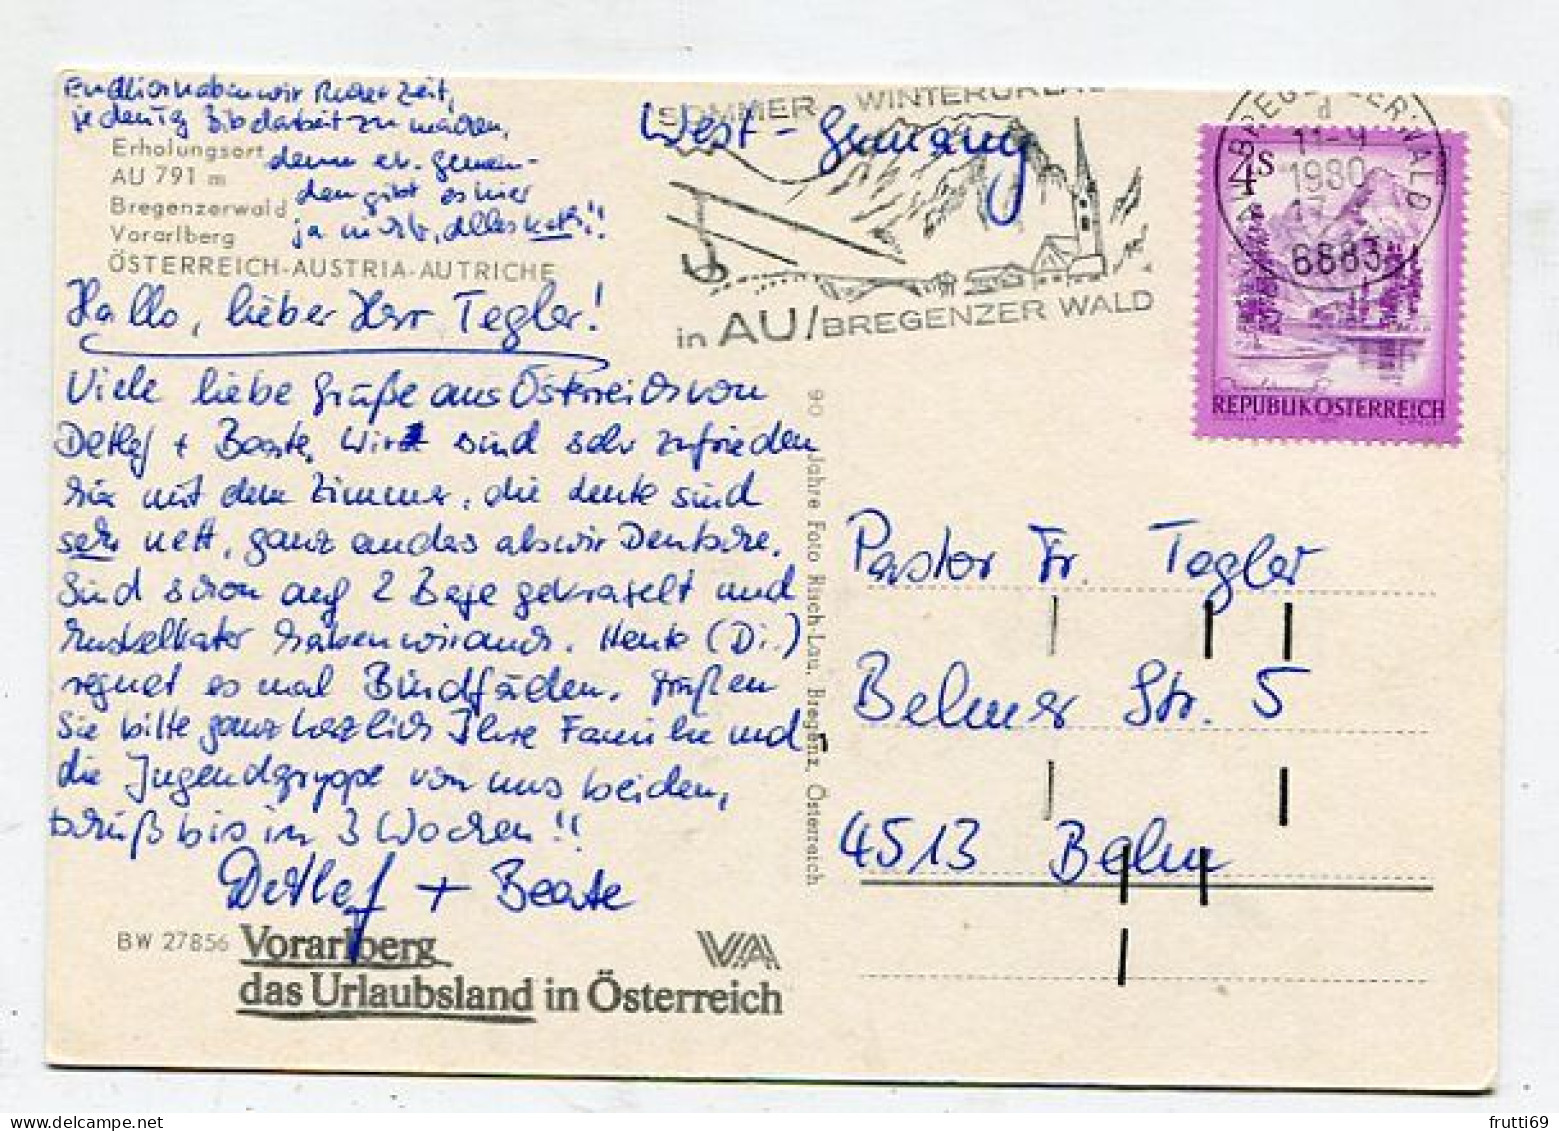 Endlich haben wir mal Zeit,
jedentg Bibelarbeit zu machen,
denn ev. Gemein-
den gibt es hier
ja nicht, alles kath!!
Erholungsort
AU 791 m
Bregenzerwald
Vorarlberg
ÖSTERREICH-AUSTRIA-AUTRICHE
Hallo, lieber Herr Tegler!
Viele liebe Grüße aus Österreich von
Detlef + Beate. Wir sind sehr zufrieden
hier mit dem Zimmer, die Leute sind
sehr nett, ganz anders als wir Deutsche.
Sind schon auf 2 Berge gekraxelt und
Muskelkater haben wir auch. Heute (Di.)
regnet es mal Bindfäden. Grüßen
Sie bitte ganz herzlich Ihre Familie und
die Jugendgruppe von uns beiden,
tschüß bis in 3 Wochen!!
Detlef + Beate
BW 27856
Vorarlberg
VA
das Urlaubsland in Österreich
90 Jahre Foto Risch-Lau, Bregenz, Österreich
SOMMER - WINTERURLAUB
West-Germany
in AU/BREGENZER WALD
BREGENZERWALD
d
1980
6883
4S
REPUBLIK ÖSTERREICH
Pastor Fr. Tegler
Belmer Str. 5
4513 Belm
frutti69